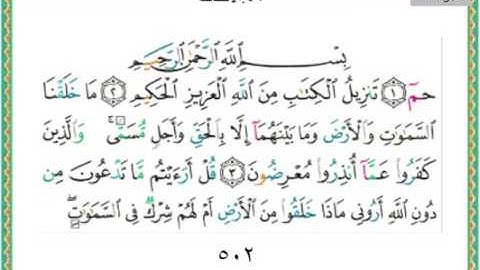 بِسْمِ اللَّهِ الرَّحْمَٰنِ الرَّحِيمِ
حمٓ ١ تَنزِيلُ الْكِتَابِ مِنَ اللَّهِ الْعَزِيزِ الْحَكِيمِ ٢ مَا خَلَقْنَا
السَّمَاوَاتِ وَالْأَرْضَ وَمَا بَيْنَهُمَا إِلَّا بِالْحَقِّ وَأَجَلٍ مُّسَمًّى ۚ وَالَّذِينَ
كَفَرُوا عَمَّا أُنذِرُوا مُعْرِضُونَ ٣ قُلْ أَرَأَيْتُم مَّا تَدْعُونَ مِن
دُونِ اللَّهِ أَرُونِي مَاذَا خَلَقُوا مِنَ الْأَرْضِ أَمْ لَهُمْ شِرْكٌ فِي السَّمَاوَاتِ ۖ
٥٠٢